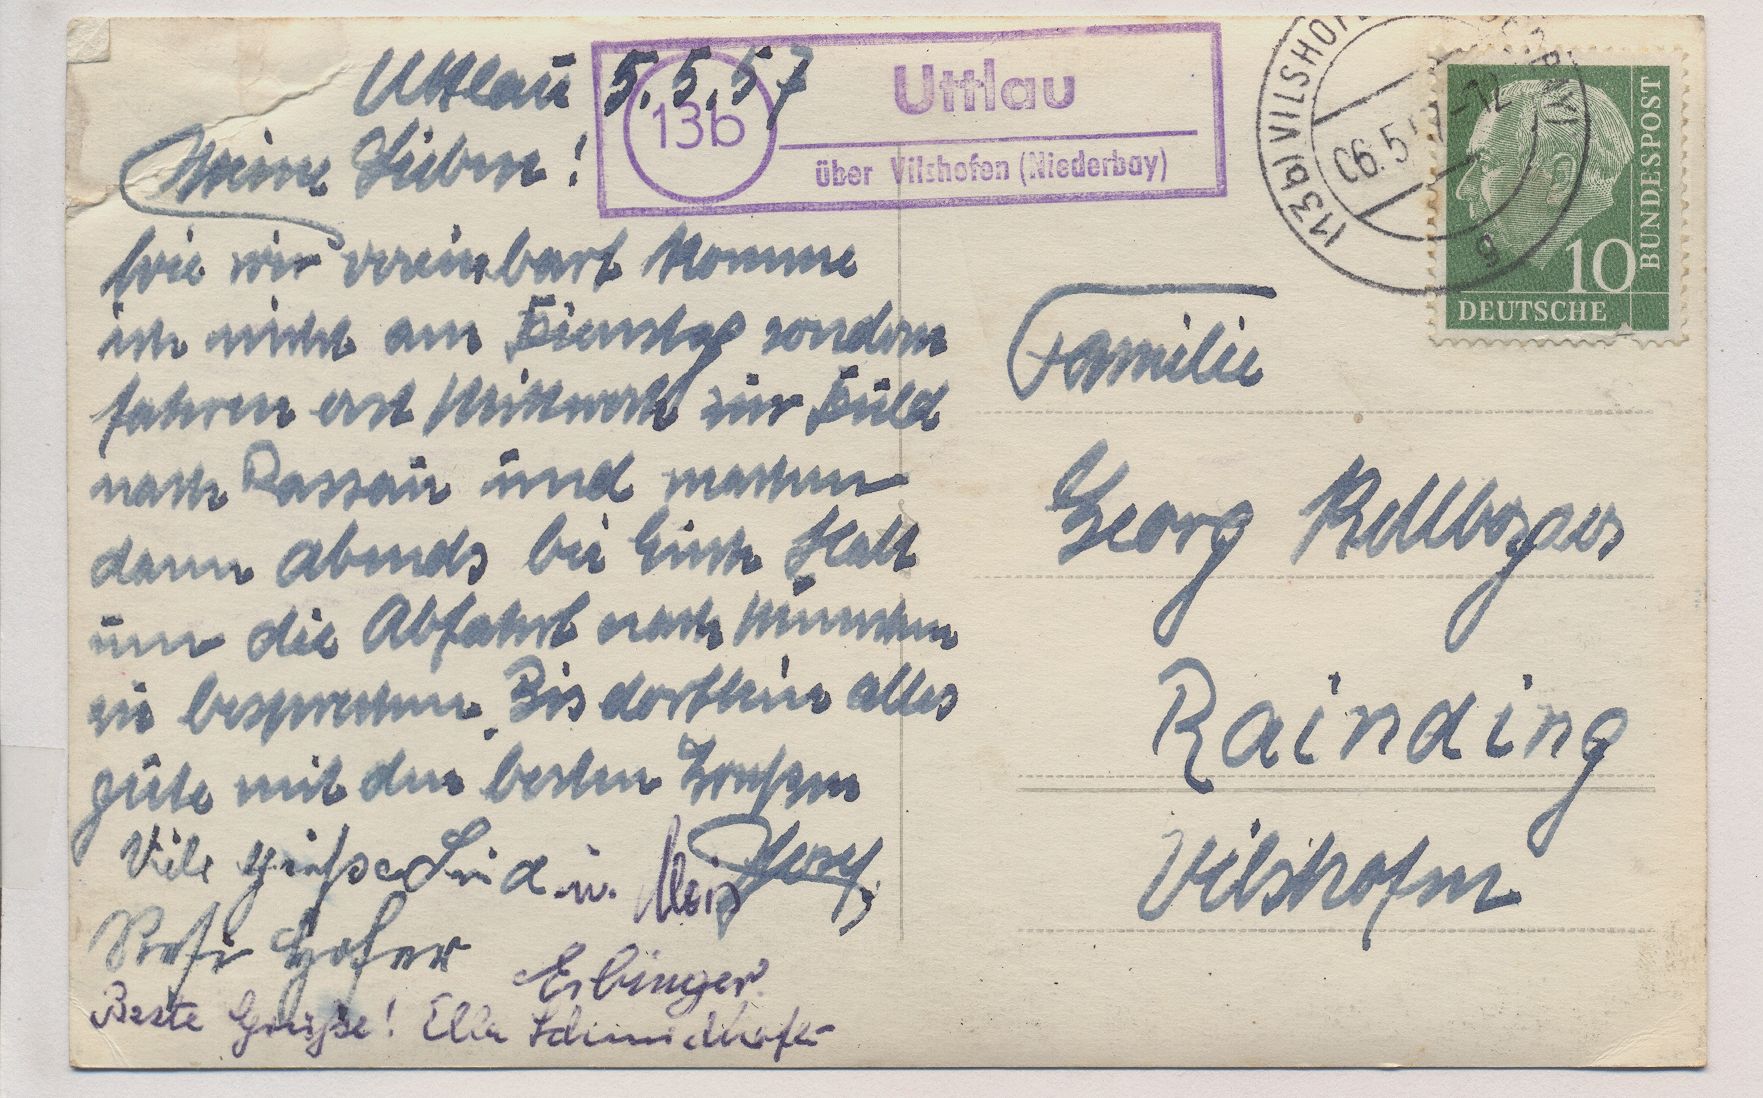 Uttlau 5.5.57
13b
Uttlau
über Vilshofen (Niederbay)
(13b) VILSHOFEN
06.5.57-12
a
10
DEUTSCHE
BUNDESPOST
Meine Lieben!
Wie wir vereinbart komme
ich nicht am Dienstag sondern
fahren erst Mittwoch zur Duld
nach Passau und machen
dann abends bei Euch Halt
um die Abfahrt nach München
zu besprechen. Bis dorthin alles
gute mit den besten Grüßen
Josef
Viele Grüße Luid u.
Hofer
Erbinger.
Beste Grüße! Ella Schmidhofer
Familie
Georg
Rainding
Vilshofen